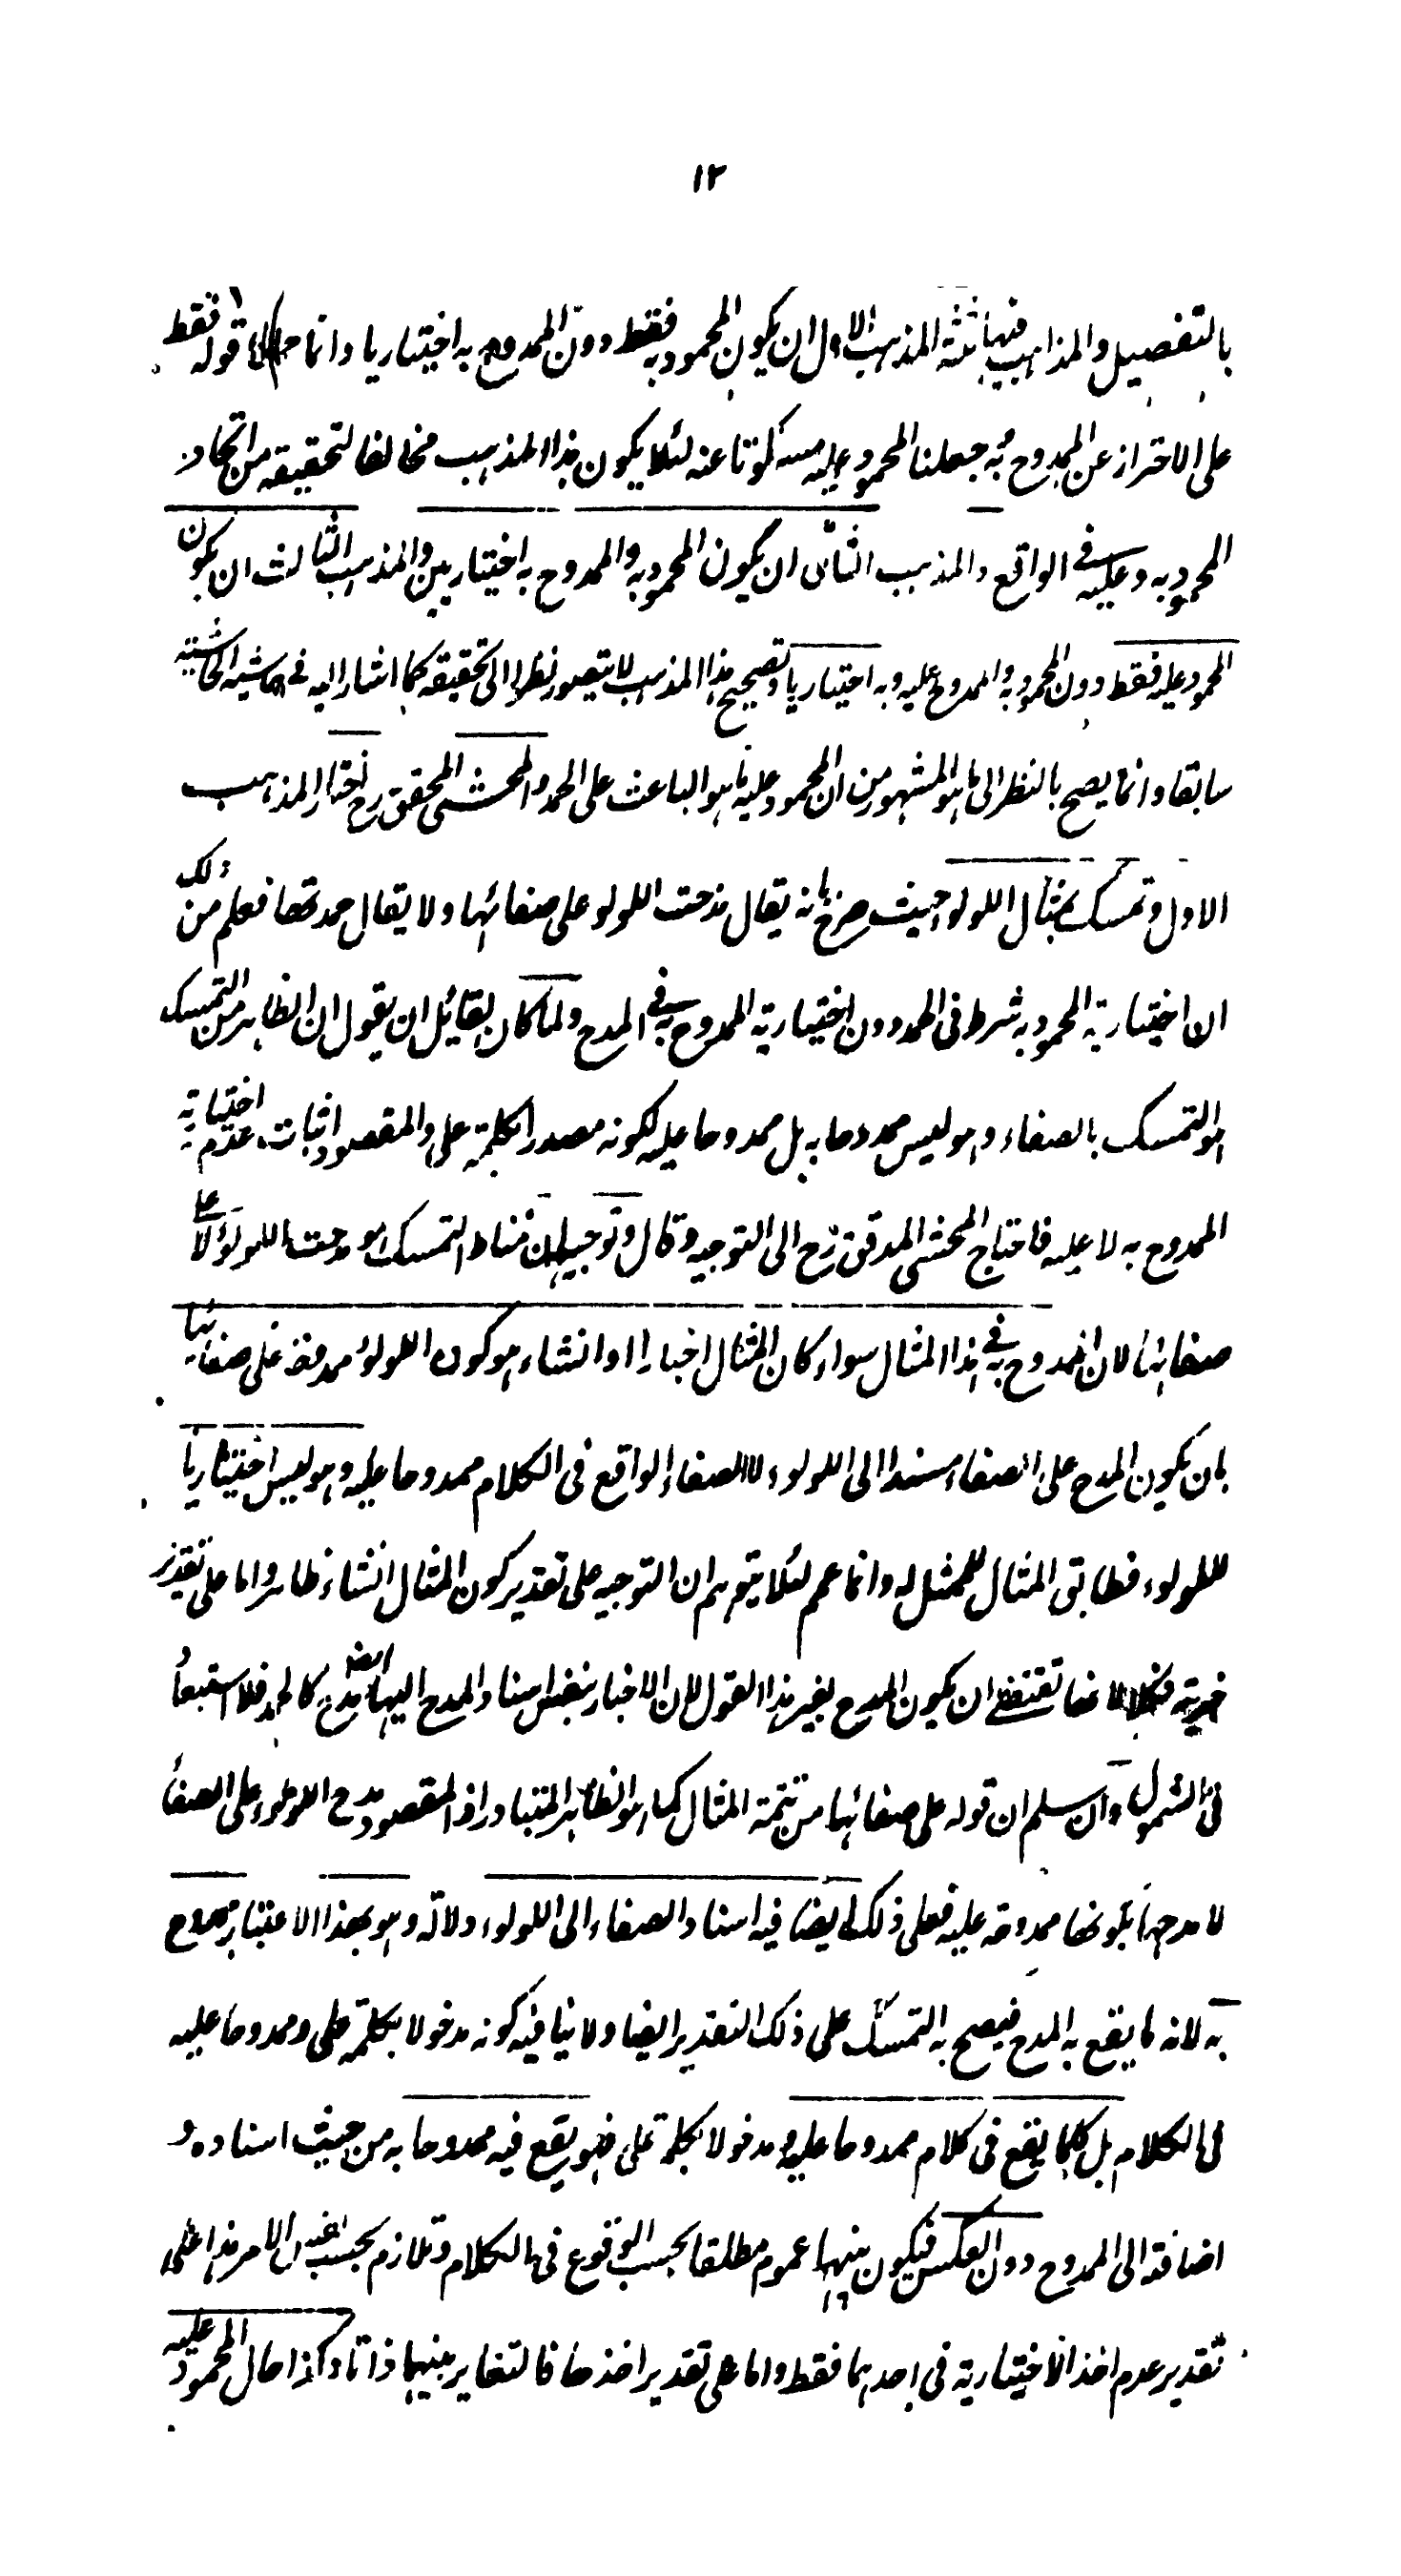 ١٢
بالتفصيل والمذاهب فيها ثلثة المذهب الاول ان يكون المحمود به فقط دون الممدوح به اختياريا وانما حملنا قوله فقط
على الاحتراز عن الممدوح به وجعلنا المحمود عليه مسكوتا عنه لئلا يكون هذا المذهب مخالفا لتحقيقه من اتحاد
المحمود به وعليه فى الواقع والمذهب الثانى ان يكون المحمود به والممدوح به اختياريين والمذهب الثالث ان يكون
المحمود عليه فقط دون المحمود به والممدوح عليه وبه اختياريا وتصحيح هذا المذهب لا يتصور نظرا الى تحقيقه كما اشار اليه فى حاشية الحاشية
سابقا وانما يصح بالنظر الى ما هو المشهور من ان المحمود عليه ما هو الباعث على الحمد والمحشى المحقق رح اختار المذهب
الاول وتمسك بمثال اللولو حيث صرح بانه يقال مدحت اللولو على صفائها ولا يقال حمدتها فعلم من ذلك
ان اختيارية المحمود به شرط فى الحمد دون اختيارية الممدوح به فى المدح ولما كان لقائل ان يقول ان الظاهر من التمسك
هو التمسك بالصفاء وهو ليس ممدوحا به بل ممدوحا عليه لكونه مصدرا بكلمة على والمقصود اثبات عدم اختيارية
الممدوح به لا عليه فاحتاج المحشى المدقق رح الى التوجيه وقال وتوجيهه ان مناط التمسك هو مدحت اللولوء لا على
صفائها لان الممدوح به فى هذا المثال سواء كان المثال اخبارا او انشاء هو كون اللولوء ممدوحة على صفائها
بان يكون المدح على الصفاء مسندا الى اللولوء لا الصفاء الواقع فى الكلام ممدوحا عليه وهو ليس اختياريا
لللولوء فطابق المثال للممثل له وانما عمم لئلا يتوهم ان التوجيه على تقدير كون المثال انشاء ظاهر واما على تقدير
خبريته فلا لانها تقتضى ان يكون المدح بغير هذا القول لان الاخبار بنفس اسناد المدح اليها ايضا مدح كالحمد فلا استبعاد
فى الشمول وان سلم ان قوله على صفائها من تتمة المثال كما هو الظاهر المتبادر اذ المقصود مدح اللولوء على الصفاء
لا مدحها بكونها ممدوحة عليه فعلى ذلك ايضا فيه اسناد الصفاء الى اللولوء دلالة وهو بهذا الاعتبار ممدوح
به لانه ما يقع به المدح فيصح به التمسك على ذلك التقدير ايضا ولا ينافيه كونه مدخولا بكلمة على وممدوحا عليه
فى الكلام بل كلما يقع فى كلام ممدوحا عليه ومدخولا بكلمة على فهو يقع فيه ممدوحا به من حيث اسناده و
اضافته الى الممدوح دون العكس فيكون بينهما عموم مطلقا بحسب الوقوع فى الكلام وتلازم بحسب نفس الامر هذا على
١٢
تقدير عدم اخذ الاختيارية فى احدهما فقط واما على تقدير اخذها فالتغاير بينهما ذاتا وكذا حال المحمود عليه